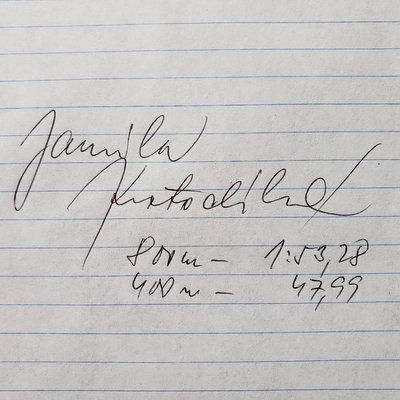 Jarmila
Kratochvílová
800 m – 1:53,28
400 m – 47,99